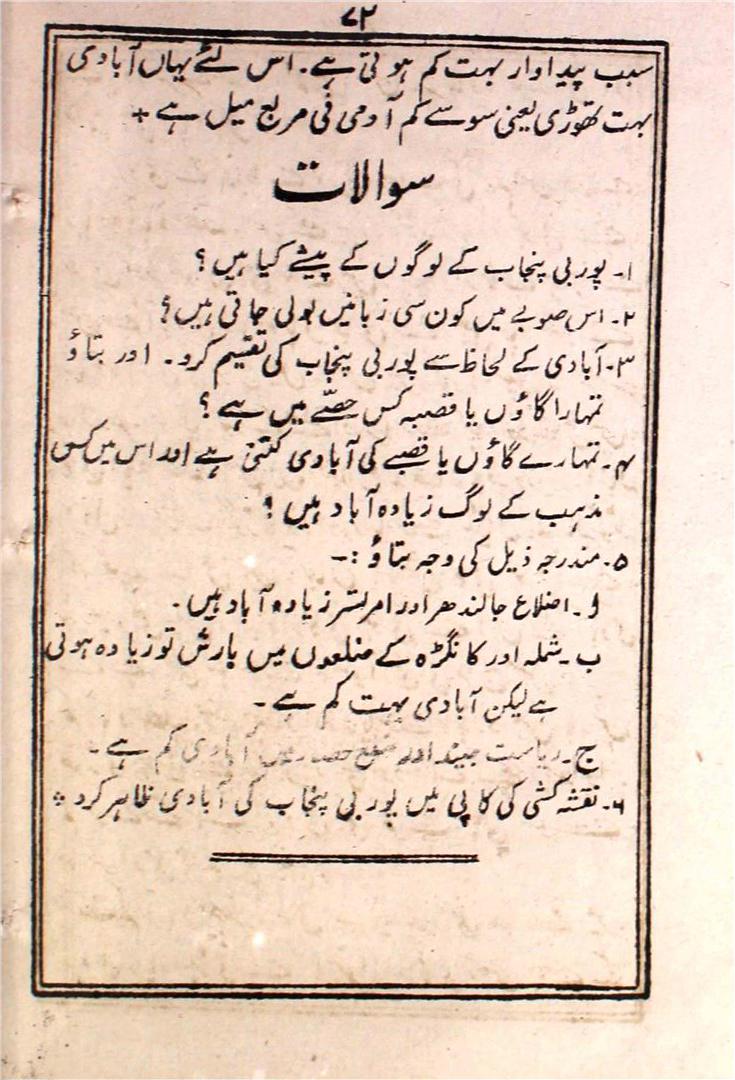 ۷۲
سبب پیداوار بہت کم ہوتی ہے۔ اس لئے یہاں آبادی
بہت تھوڑی یعنی سو سے کم آدمی فی مربع میل ہے +
سوالات
۱۔ پوربی پنجاب کے لوگوں کے پیشے کیا ہیں؟
۲۔ اس صوبے میں کون سی زبانیں بولی جاتی ہیں؟
۳۔ آبادی کے لحاظ سے پوربی پنجاب کی تقسیم کرو۔ اور بتاؤ
تمہارا گاؤں یا قصبہ کس حصّے میں ہے؟
۴۔ تمہارے گاؤں یا قصبے کی آبادی کتنی ہے اور اس میں کس
مذہب کے لوگ زیادہ آباد ہیں؟
۵۔ مندرجہ ذیل کی وجہ بتاؤ :۔
ا۔ اضلاع جالندھر اور امرتسر زیادہ آباد ہیں۔
ب۔ شملہ اور کانگڑہ کے ضلعوں میں بارش تو زیادہ ہوتی
ہے لیکن آبادی بہت کم ہے۔
ج۔ ریاست جیند اور ضلع حصار میں آبادی کم ہے۔
۶۔ نقشہ کشی کی کاپی میں پوربی پنجاب کی آبادی ظاہر کرو +